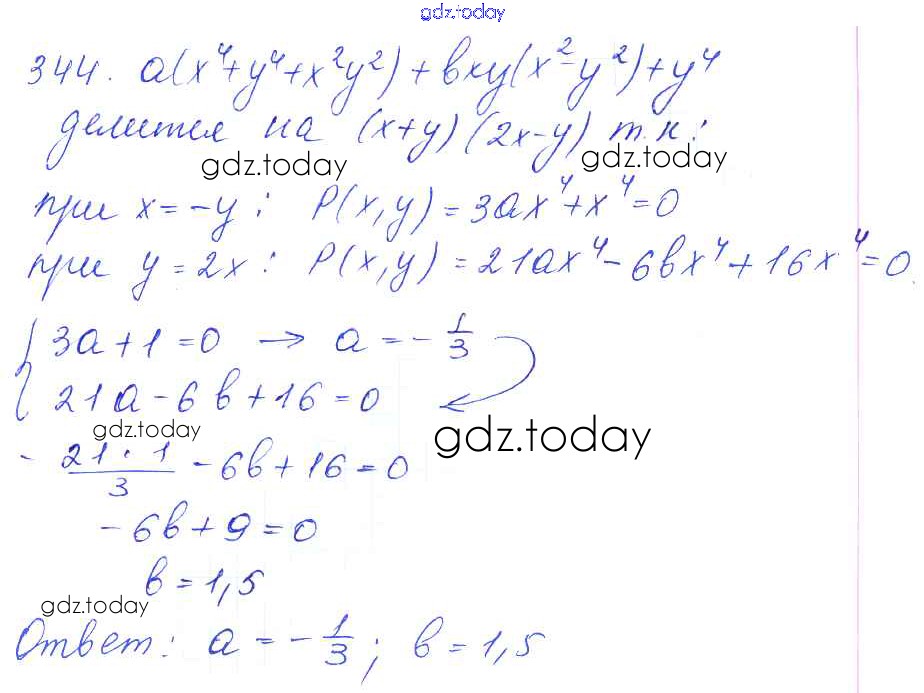 gdz.today
344. a(x⁴+y⁴+x²y²)+вxy(x²-y²)+y⁴
делится на (x+y)(2x-y) т.к:
gdz.today gdz.today
при x=-y: P(x,y)=3ax⁴+x⁴=0
при y=2x: P(x,y)=21ax⁴-6вx⁴+16x⁴=0
{ 3a+1=0 → a=-1/3
21a-6в+16=0
gdz.today gdz.today
- 21·1/3 -6в+16=0
-6в+9=0
в=1,5
gdz.today
Ответ: a=-1/3; в=1,5